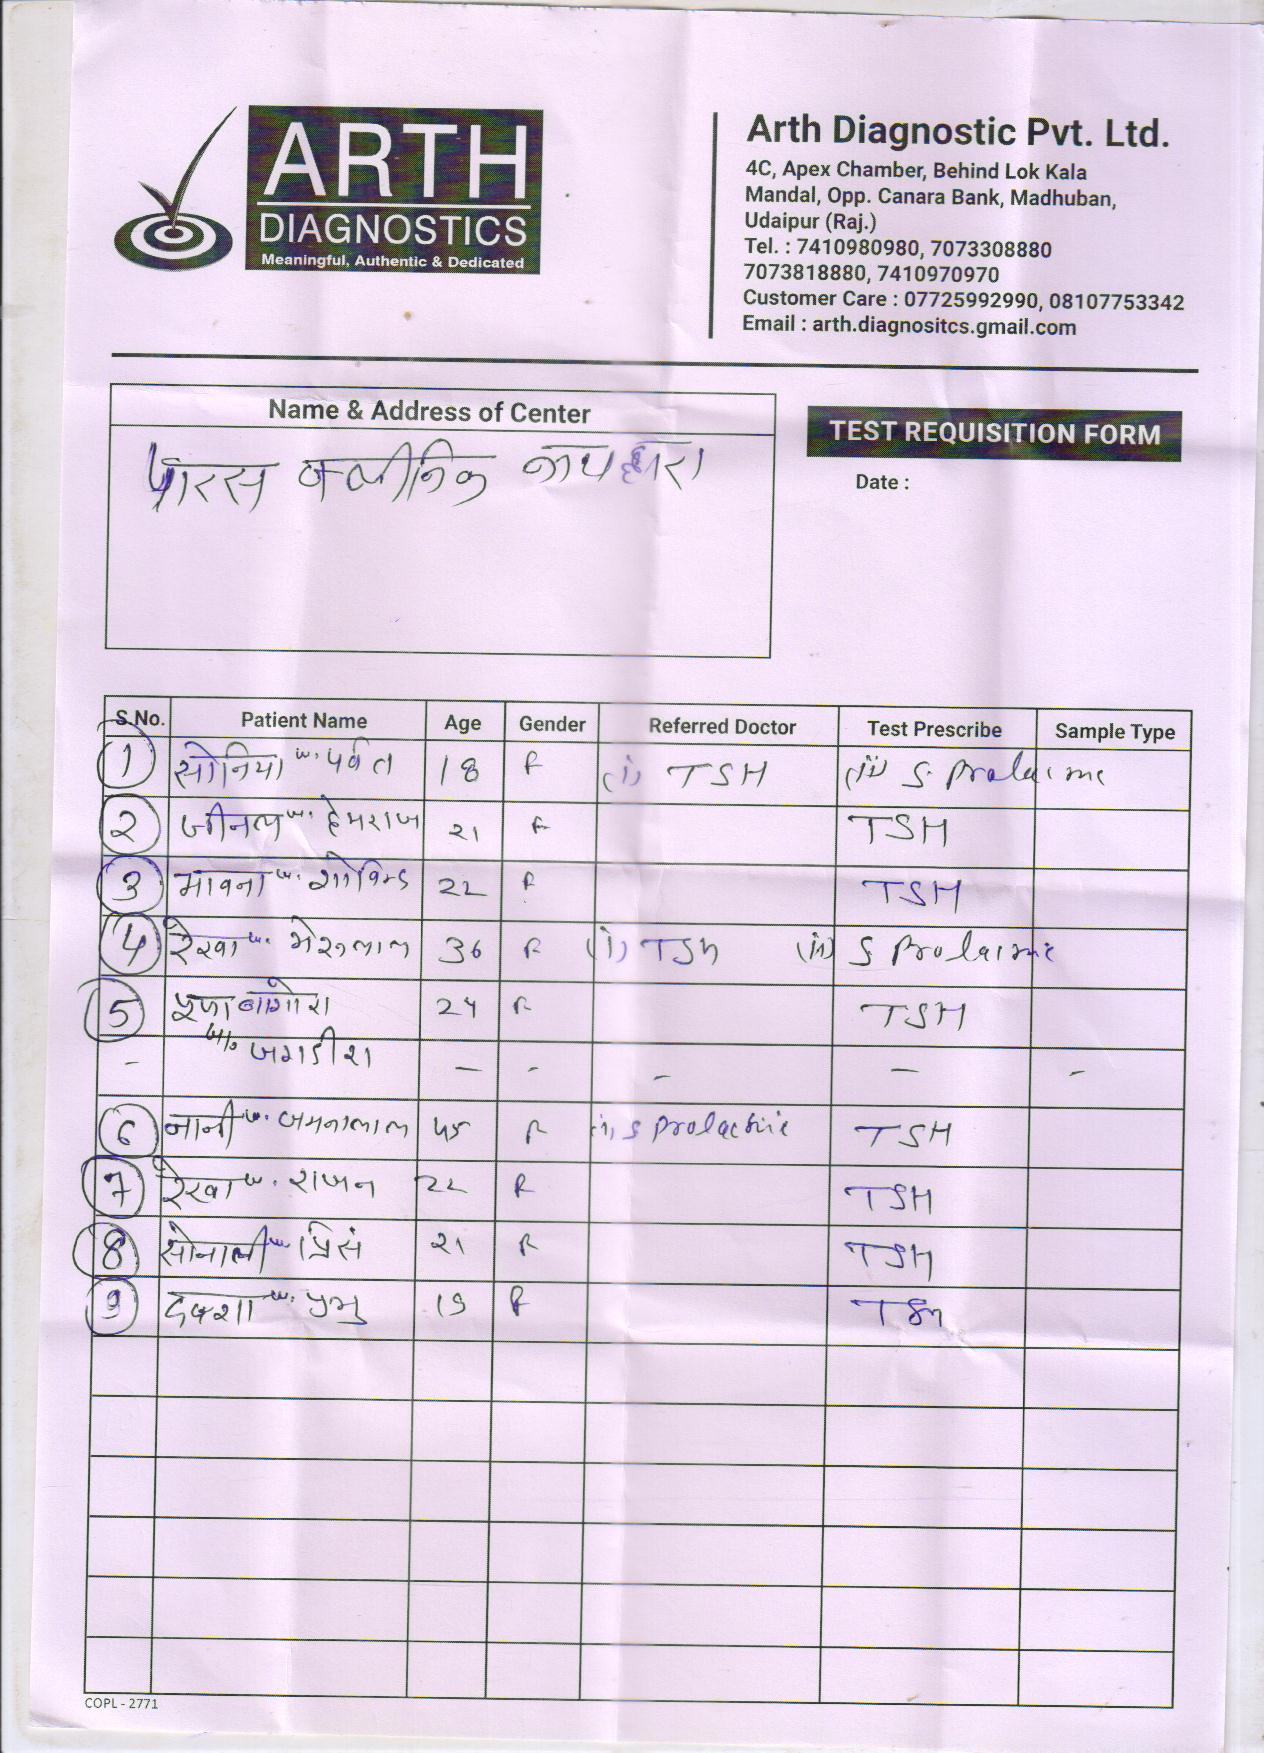 ARTH
DIAGNOSTICS
Meaningful, Authentic & Dedicated
Arth Diagnostic Pvt. Ltd.
4C, Apex Chamber, Behind Lok Kala
Mandal, Opp. Canara Bank, Madhuban,
Udaipur (Raj.)
Tel. : 7410980980, 7073308880
7073818880, 7410970970
Customer Care : 07725992990, 08107753342
Email : arth.diagnositcs.gmail.com
Name & Address of Center
पारस क्लीनिक
TEST REQUISITION FORM
Date :
S.No. Patient Name Age Gender Referred Doctor Test Prescribe Sample Type
1 सोनिया w. पर्वत 18 F (i) TSH (ii) S.
2 जीनल w. हेमराज 21 F TSH
3 भावना w. गोविन्द 22 F TSH
4 रेखा w. भेरूलाल 36 F (i) TSH (ii) S
5 पूजा 24 F TSH
- w/o जगदीश - - - - -
6 w. जमनालाल 45 F S prolactine TSH
7 रेखा w. राजन 22 F TSH
8 सोनाली w. प्रिंस 21 F TSH
9 दक्शा w. प्रभु 19 F TSH
COPL - 2771